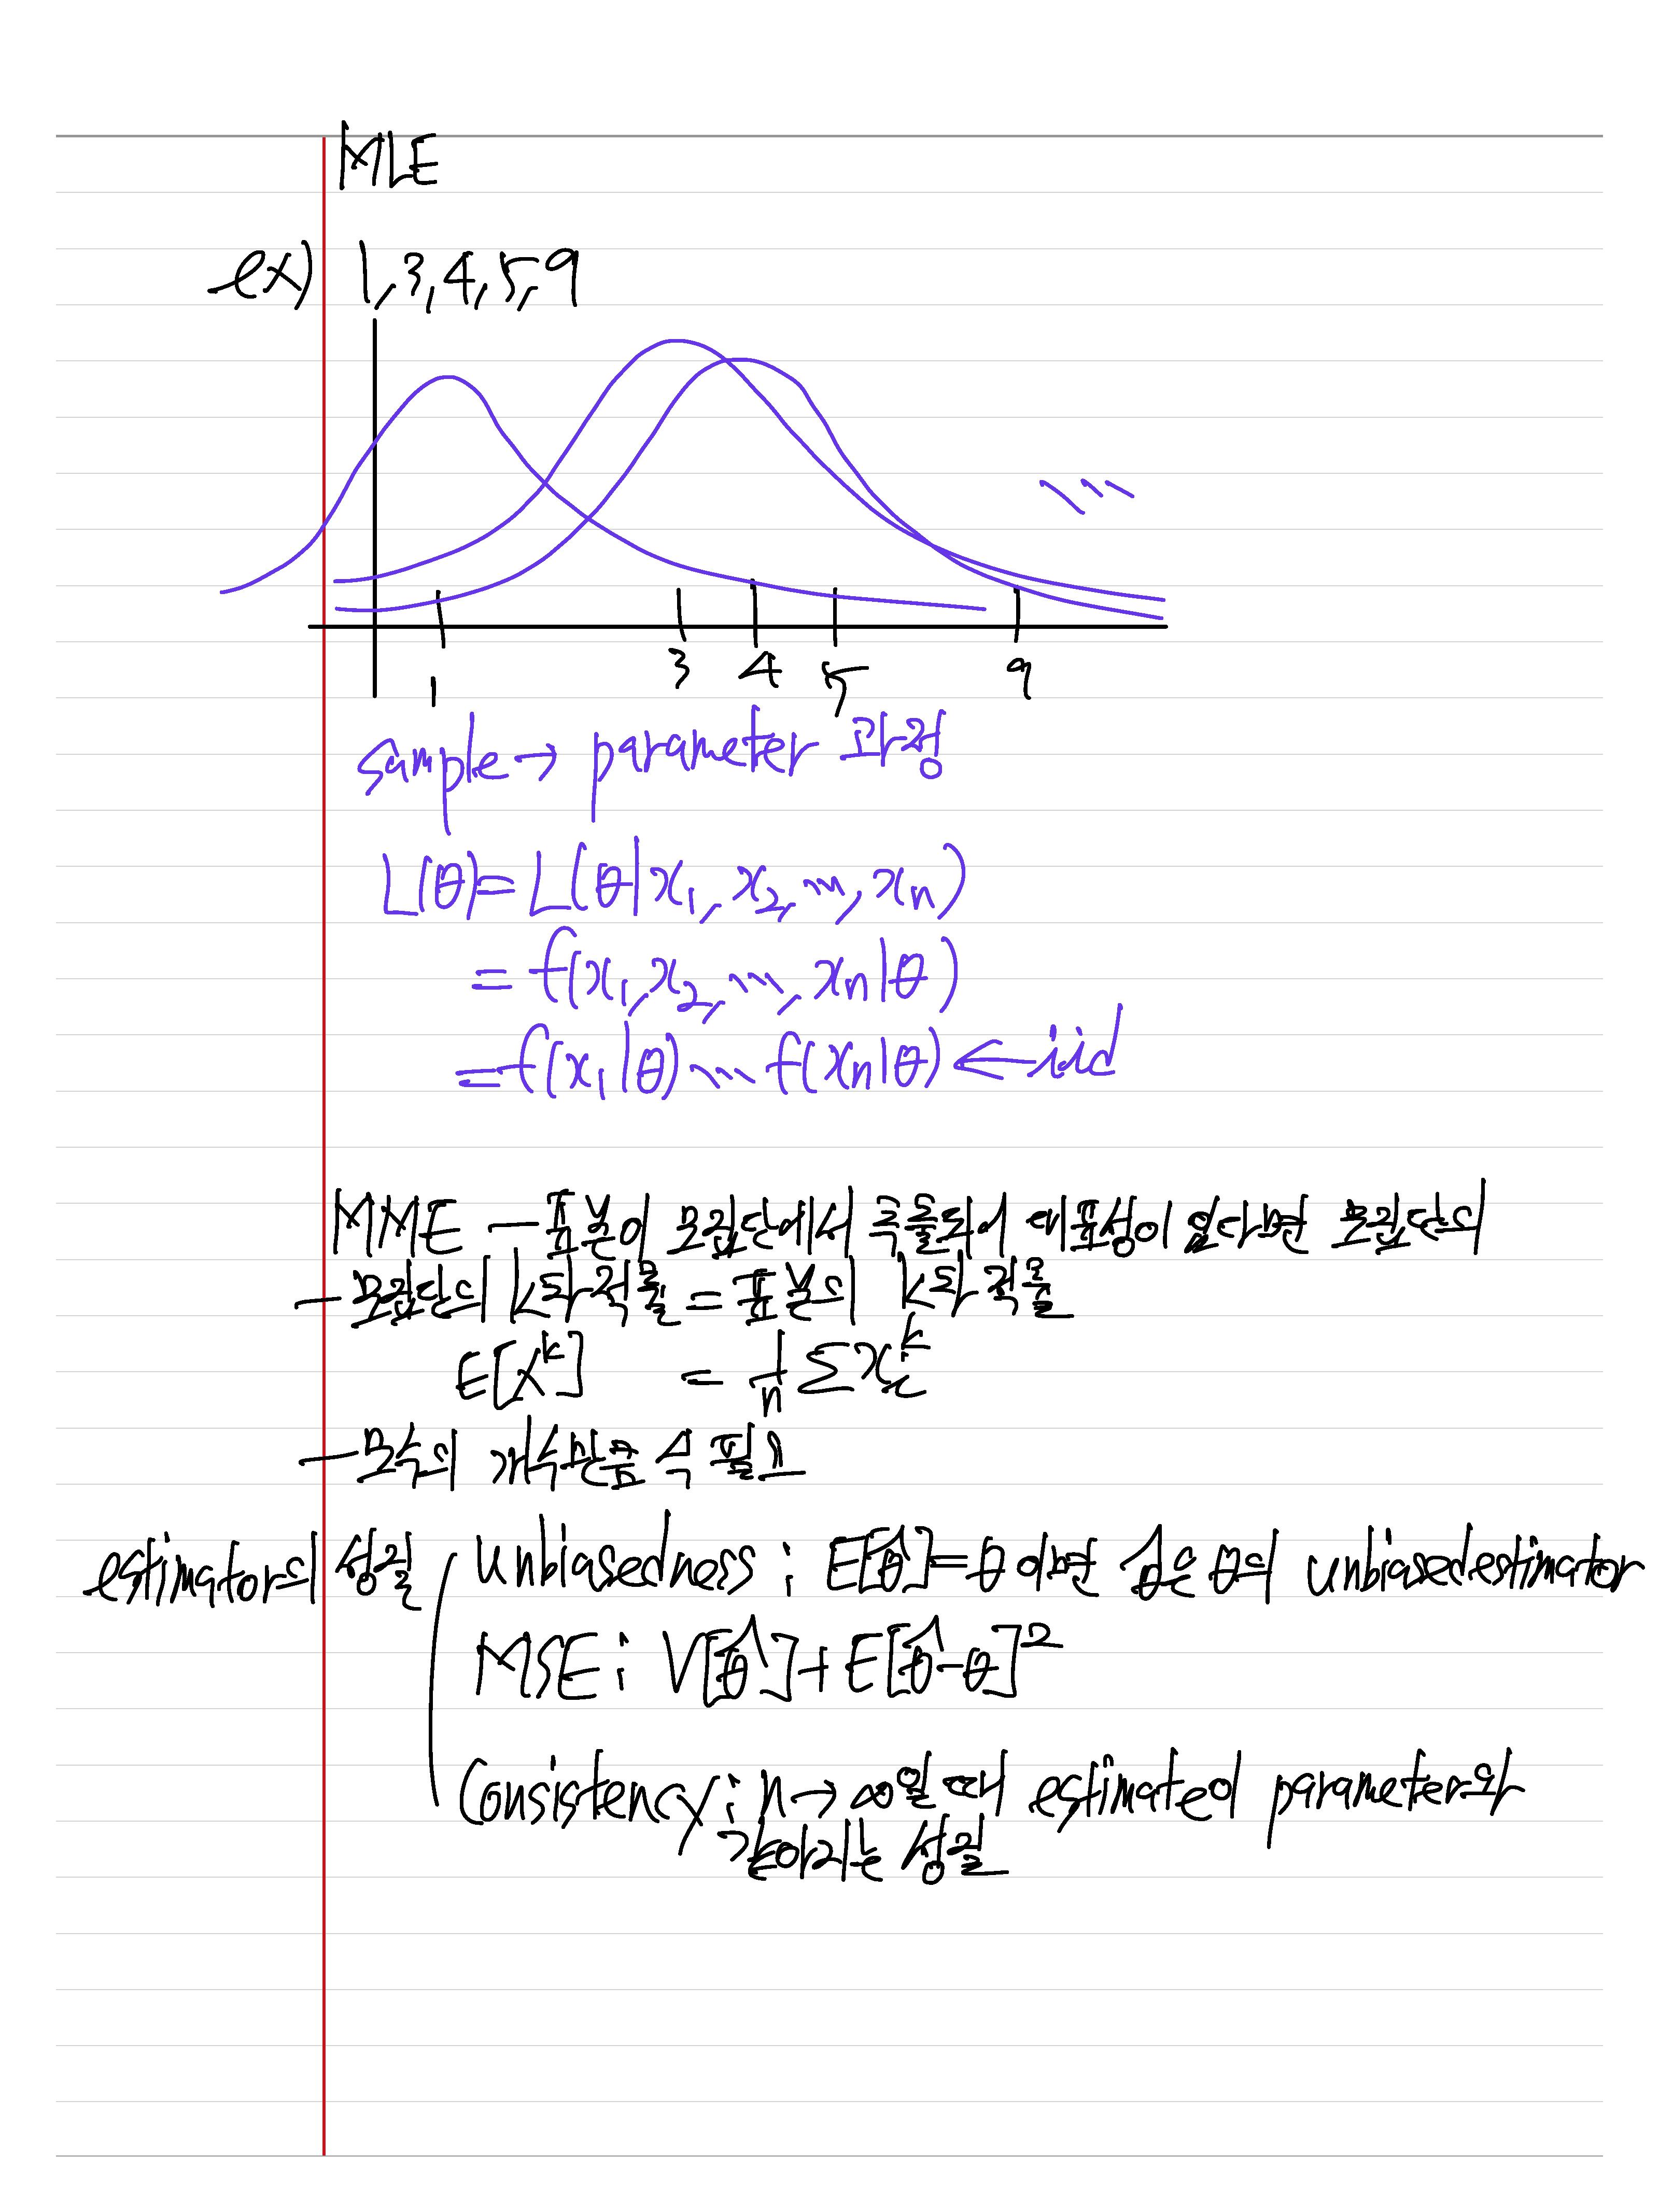 MLE
ex) 1, 3, 4, 5, 9
1 3 4 5 9
sample → parameter 과정
L(θ) = L(θ|x₁, x₂, ..., xₙ)
= f(x₁, x₂, ..., xₙ|θ)
= f(x₁|θ) ... f(xₙ|θ) ← iid
MME - 표본이 모집단에서 추출되어 대표성이 있다면 모집단의
- 모집단의 k차 적률 = 표본의 k차 적률
E[Xᵏ] = 1/n Σxᵢᵏ
- 모수의 개수만큼 식 필요
estimator의 성질 unbiasedness : E[θ̂] = θ 이면 θ̂은 θ의 unbiased estimator
MSE : V[θ̂] + E[θ̂-θ]²
Consistency : n → ∞일 때 estimated parameter와
같아지는 성질